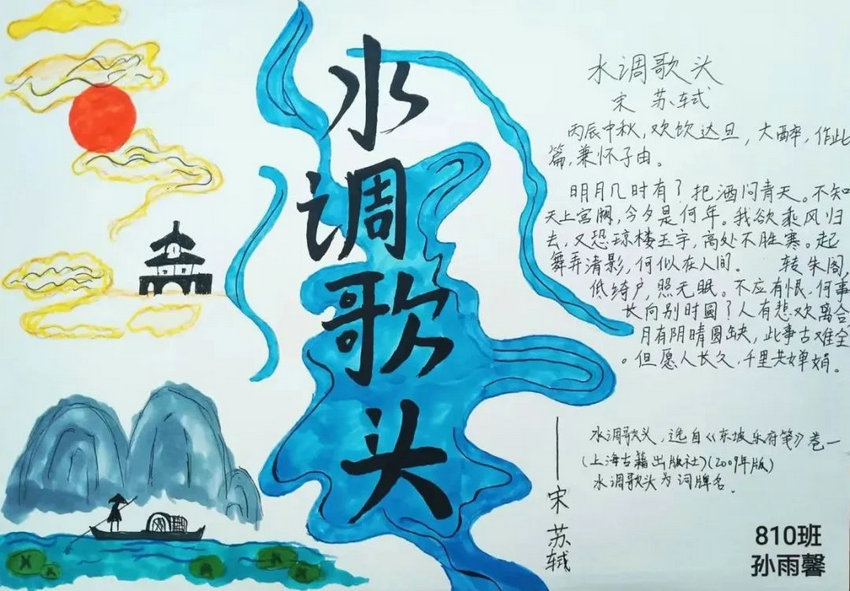 水调歌头
水调歌头
宋 苏轼
丙辰中秋,欢饮达旦,大醉,作此
篇,兼怀子由。
明月几时有?把酒问青天。不知
天上宫阙,今夕是何年。我欲乘风归
去,又恐琼楼玉宇,高处不胜寒。起
舞弄清影,何似在人间。 转朱阁,
低绮户,照无眠。不应有恨,何事
长向别时圆?人有悲欢离合
月有阴晴圆缺,此事古难全
。但愿人长久,千里共婵娟。
水调歌头,选自《东坡乐府笺》卷一
(上海古籍出版社)(2009年版)
水调歌头为词牌名。
——宋 苏轼
810班
孙雨馨